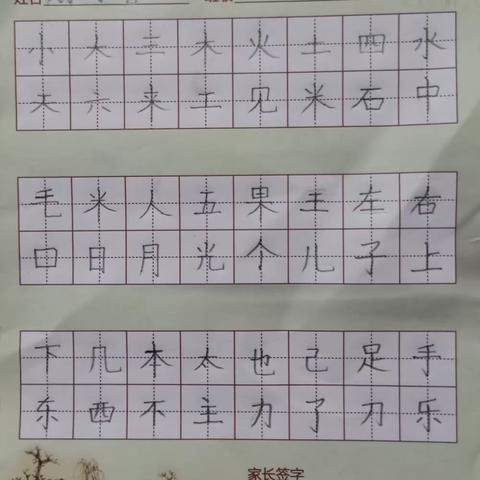 小大三木火土四水
天六来工见米石中
毛米人五果主左右
口日月光个儿子上
下几本太也己足手
东西不主力了刀乐
家长签字